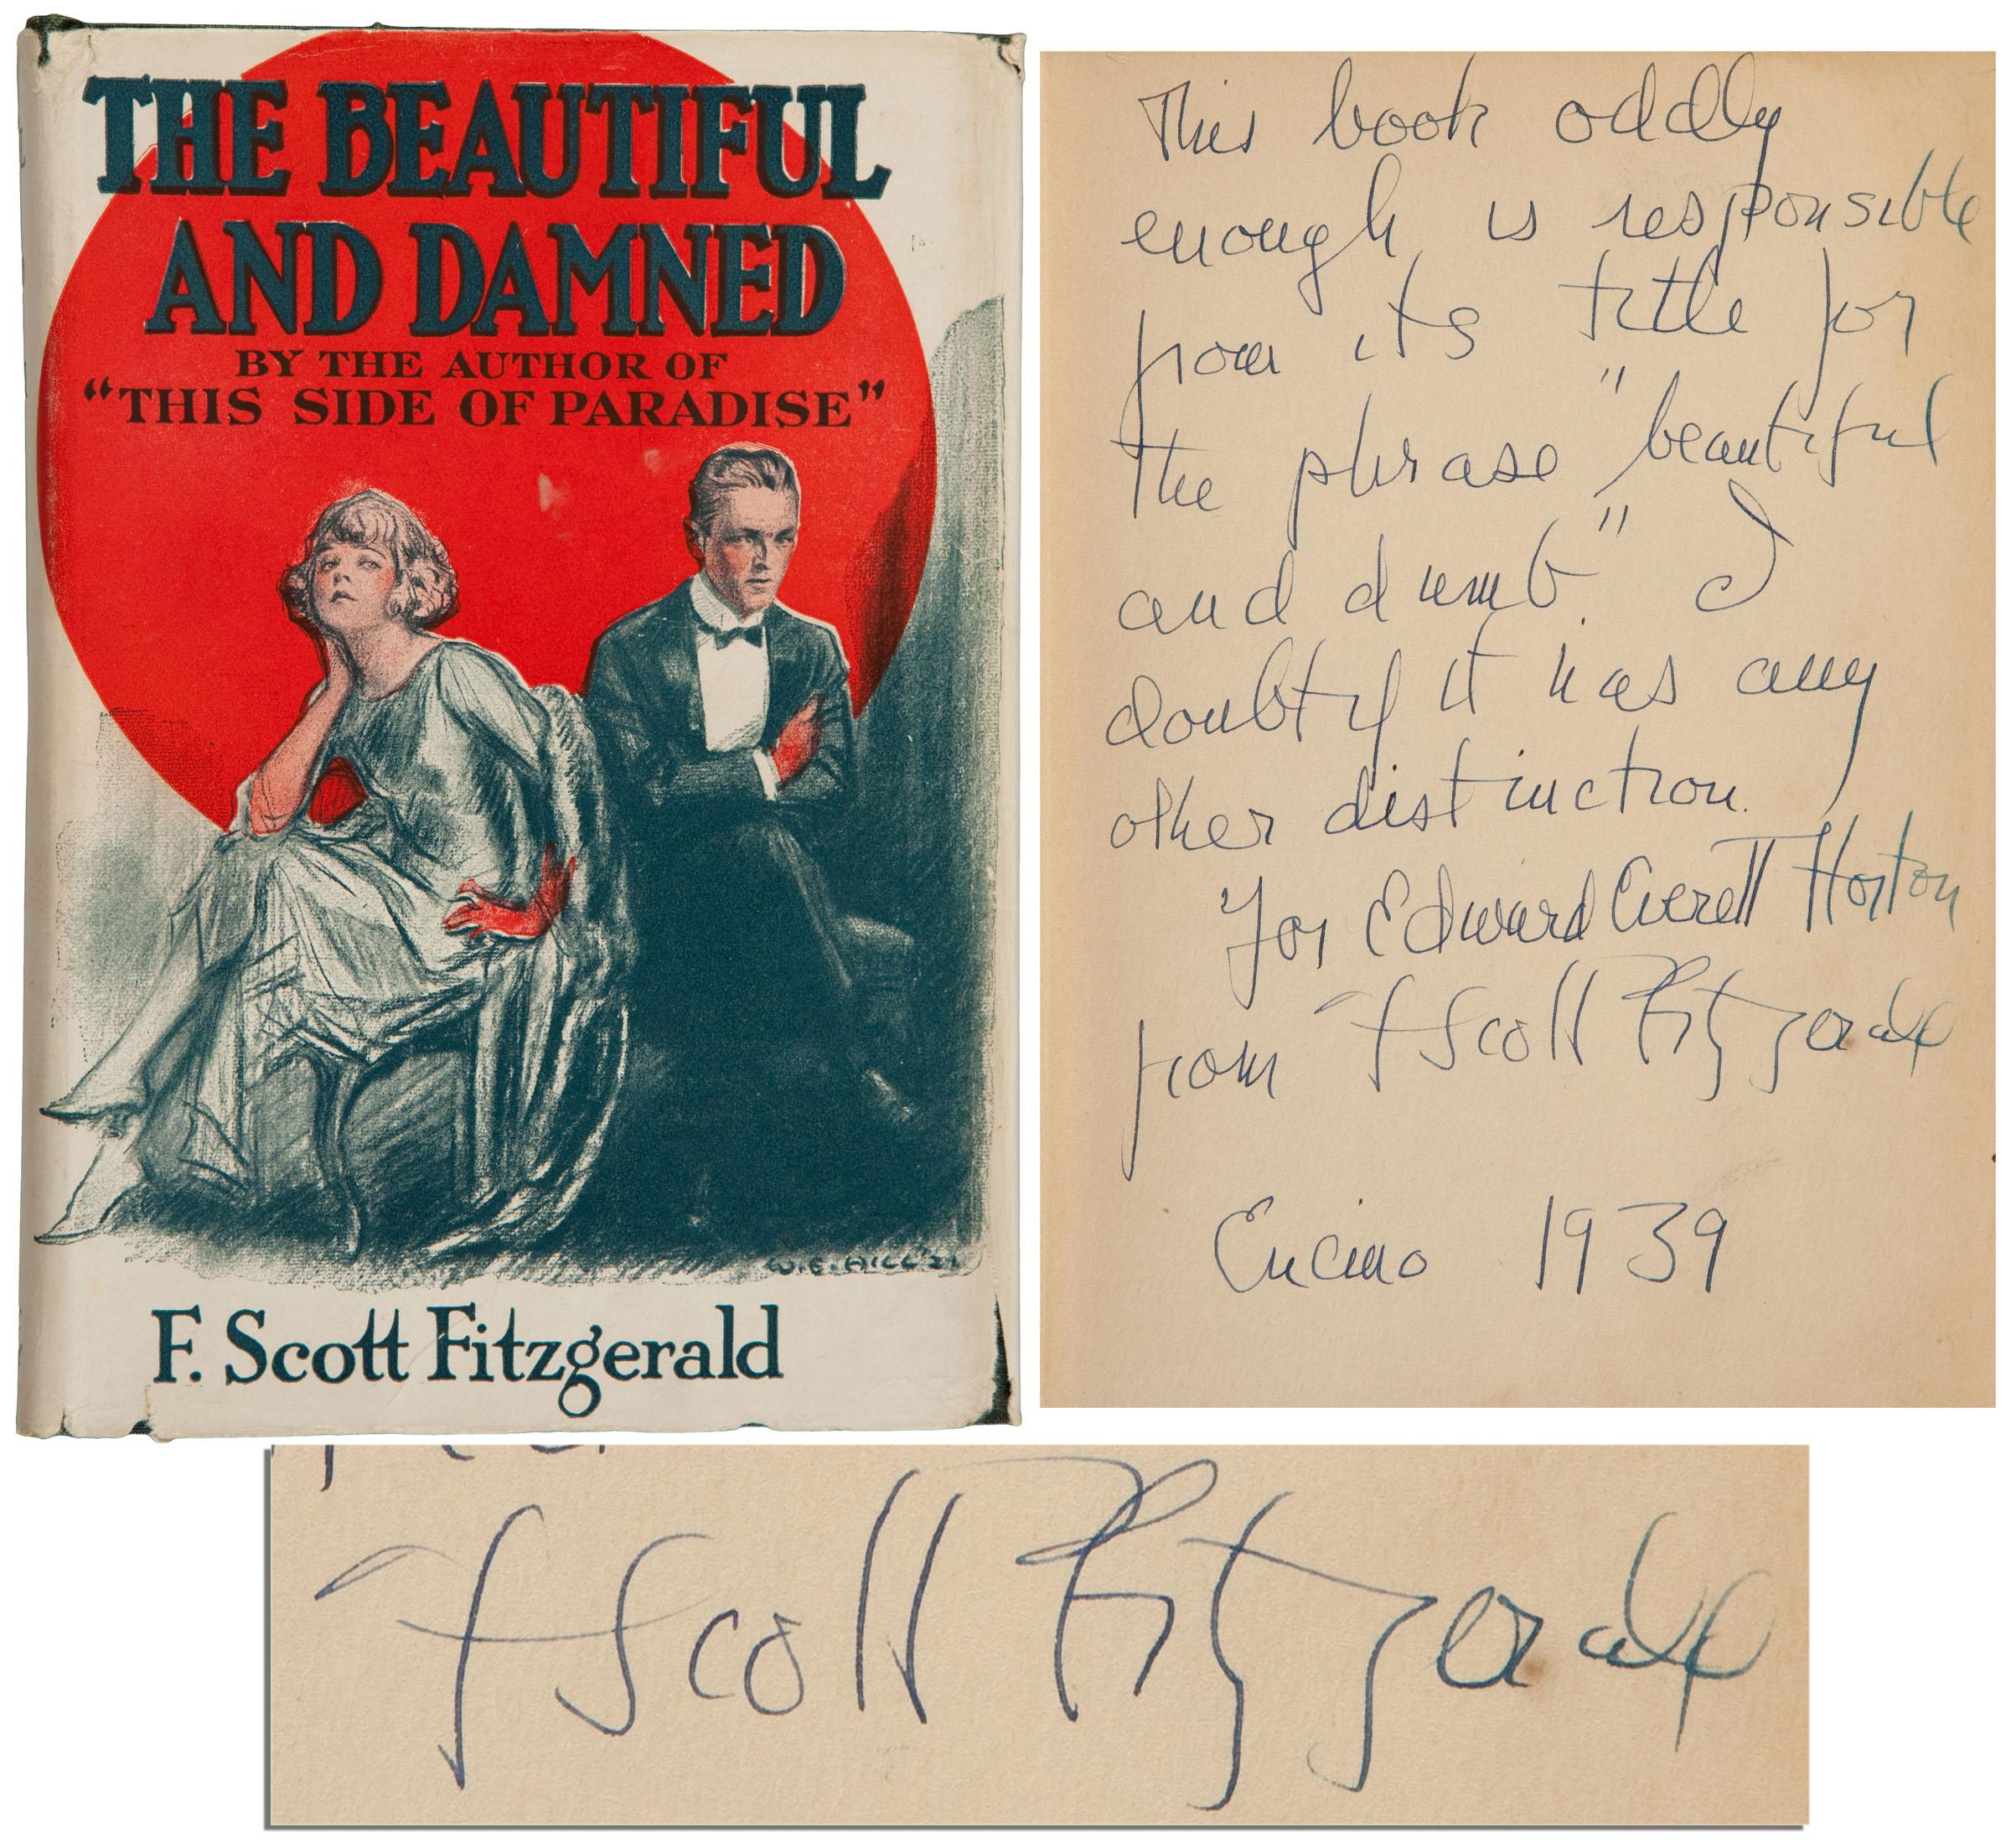 THE BEAUTIFUL
AND DAMNED
BY THE AUTHOR OF
"THIS SIDE OF PARADISE"
W.E. HILL '21
F. Scott Fitzgerald
This book oddly
enough is responsible
from its title for
the phrase "beautiful
and dumb." I
doubt if it has any
other distinction.
For Edward Everett Horton
from F Scott Fitzgerald
Encino 1939
F Scott Fitzgerald